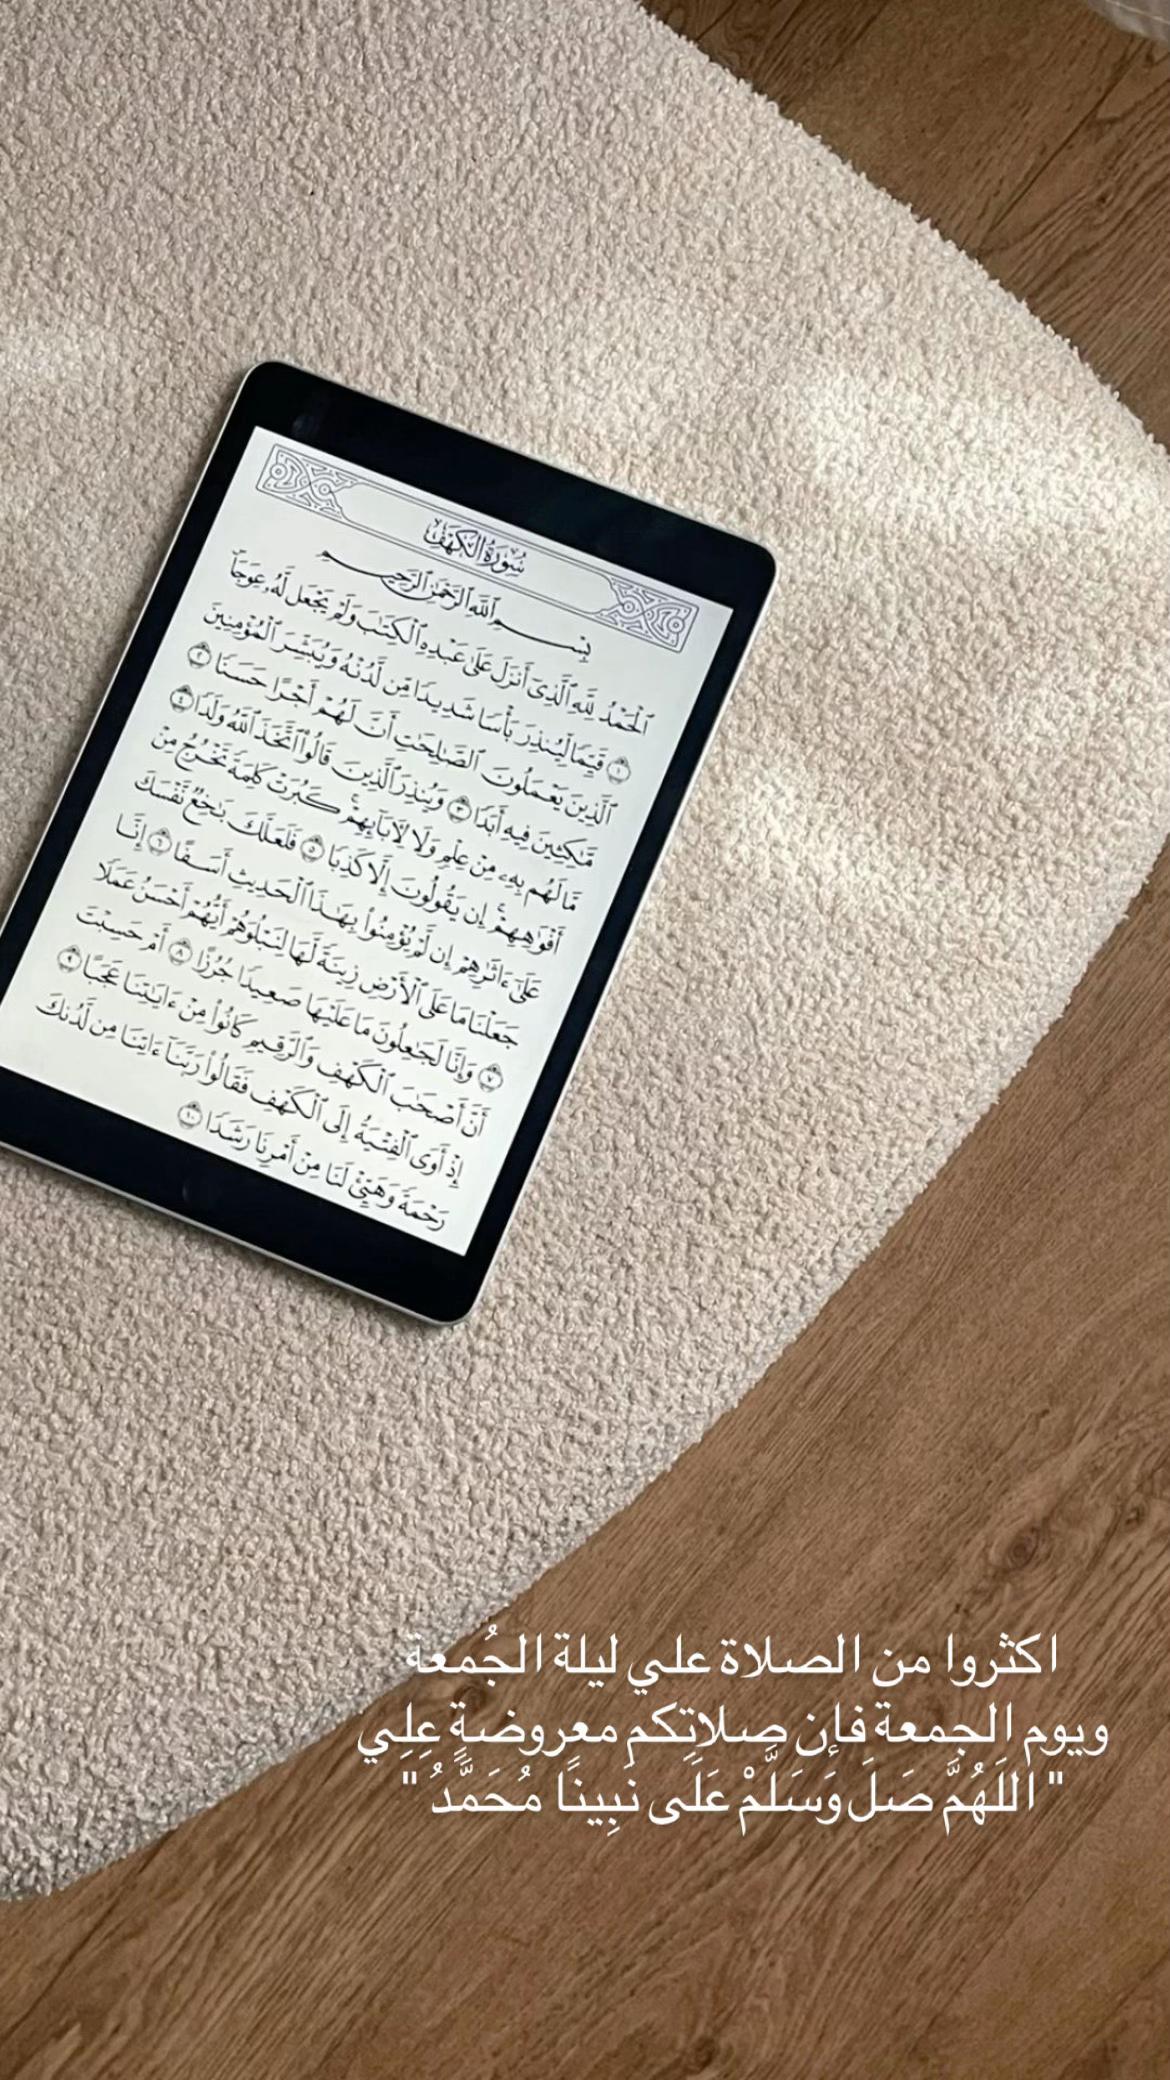 سُورَةُ الكَهْفِ
بِسْمِ ٱللَّهِ ٱلرَّحْمَٰنِ ٱلرَّحِيمِ
ٱلْحَمْدُ لِلَّهِ ٱلَّذِىٓ أَنزَلَ عَلَىٰ عَبْدِهِ ٱلْكِتَٰبَ وَلَمْ يَجْعَل لَّهُۥ عِوَجَاۜ
١ قَيِّمًا لِّيُنذِرَ بَأْسًا شَدِيدًا مِّن لَّدُنْهُ وَيُبَشِّرَ ٱلْمُؤْمِنِينَ
ٱلَّذِينَ يَعْمَلُونَ ٱلصَّٰلِحَٰتِ أَنَّ لَهُمْ أَجْرًا حَسَنًا ٢
مَّٰكِثِينَ فِيهِ أَبَدًا ٣ وَيُنذِرَ ٱلَّذِينَ قَالُوا۟ ٱتَّخَذَ ٱللَّهُ وَلَدًا ٤
مَّا لَهُم بِهِۦ مِنْ عِلْمٍ وَلَا لِـَٔابَآئِهِمْ ۚ كَبُرَتْ كَلِمَةً تَخْرُجُ مِنْ
أَفْوَٰهِهِمْ ۚ إِن يَقُولُونَ إِلَّا كَذِبًا ٥ فَلَعَلَّكَ بَٰخِعٌ نَّفْسَكَ
عَلَىٰٓ ءَاثَٰرِهِمْ إِن لَّمْ يُؤْمِنُوا۟ بِهَٰذَا ٱلْحَدِيثِ أَسَفًا ٦ إِنَّا
جَعَلْنَا مَا عَلَى ٱلْأَرْضِ زِينَةً لَّهَا لِنَبْلُوَهُمْ أَيُّهُمْ أَحْسَنُ عَمَلًا
٧ وَإِنَّا لَجَٰعِلُونَ مَا عَلَيْهَا صَعِيدًا جُرُزًا ٨ أَمْ حَسِبْتَ
أَنَّ أَصْحَٰبَ ٱلْكَهْفِ وَٱلرَّقِيمِ كَانُوا۟ مِنْ ءَايَٰتِنَا عَجَبًا ٩
إِذْ أَوَى ٱلْفِتْيَةُ إِلَى ٱلْكَهْفِ فَقَالُوا۟ رَبَّنَآ ءَاتِنَا مِن لَّدُنكَ
رَحْمَةً وَهَيِّئْ لَنَا مِنْ أَمْرِنَا رَشَدًا ١٠
اكثروا من الصلاة علي ليلة الجُمعة
ويوم الجمعة فإن صلاتكم معروضة علي
" اللَهُمَّ صَلَ وَسَلَّمْ عَلَى نَبِينًا مُحَمَّدُ "